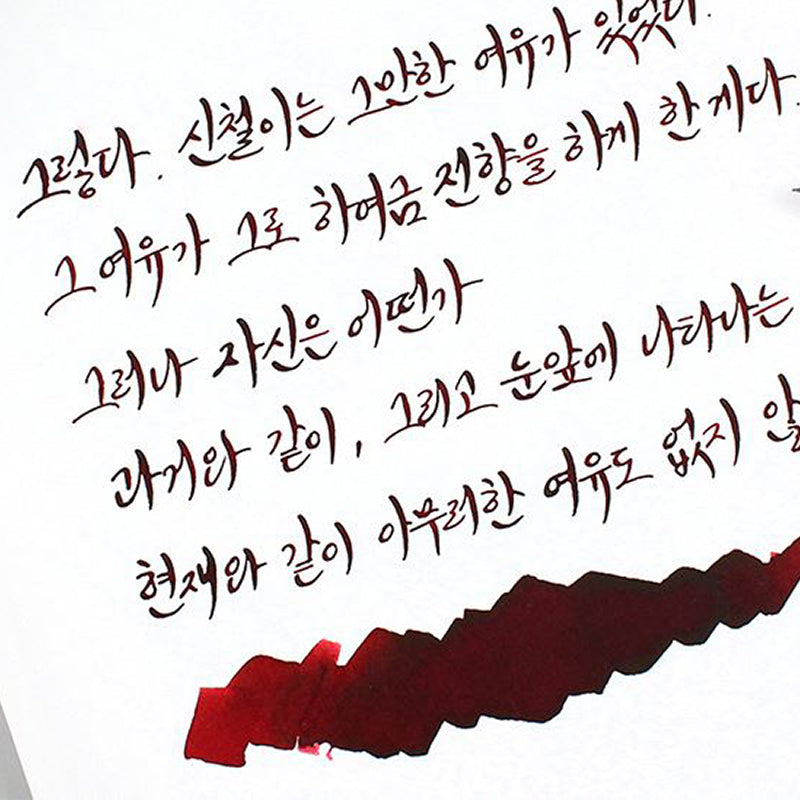 그렇다. 신철이는 그만한 여유가 있었다.
그 여유가 그로 하여금 전향을 하게 한 게다.
그러나 자신은 어떤가
과거와 같이, 그리고 눈앞에 나타나는
현재와 같이 아무러한 여유도 없지